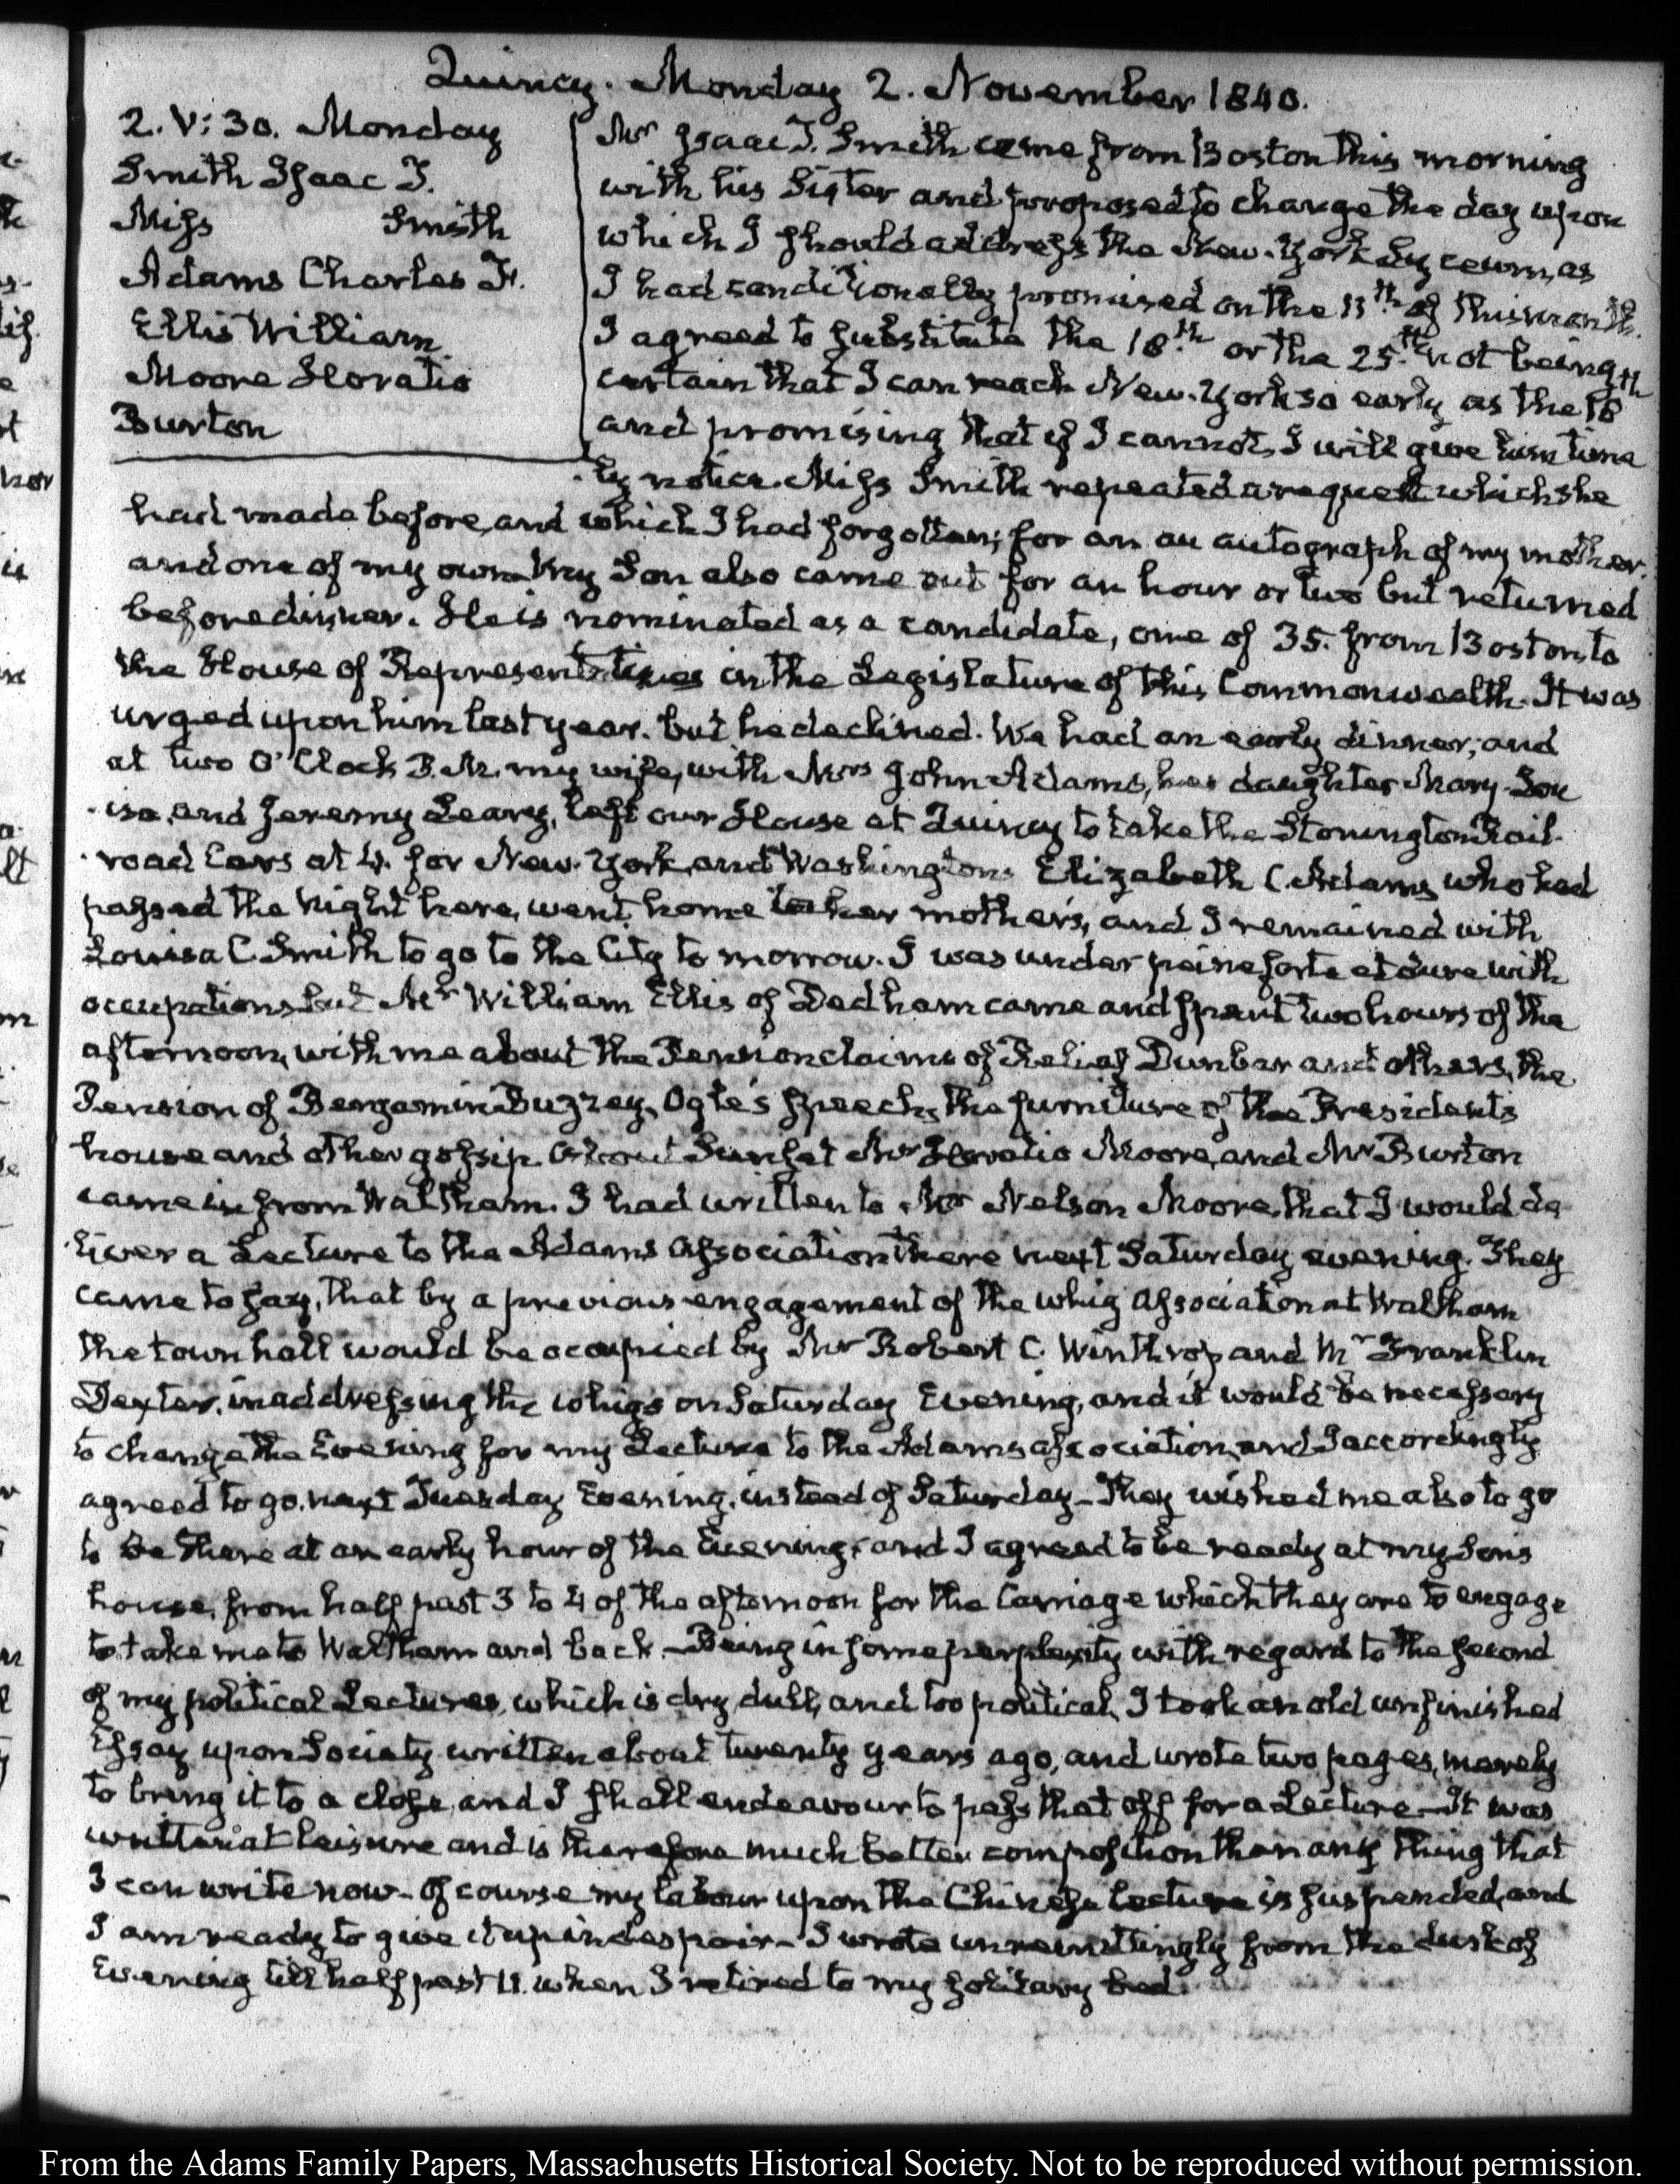 Quincy. Monday 2. November 1840.
2. V: 30. Monday
Smith Isaac T.
Miss Smith
Adams Charles F.
Ellis William
Moore Horatio
Burton
Mr Isaac T. Smith came from Boston this morning
with his Sister and proposed to change the day upon
which I should address the New-York Lyceum, as
I had conditionally promised on the 11th of this month.
I agreed to substitute the 18th or the 25th not being
certain that I can reach New-York so early as the 18th
and promising that if I cannot, I will give him time-
ly notice. Miss Smith repeated a request which she
had made before, and which I had forgotten; for an an autograph of my mother.
and one of my own. My Son also came out for an hour or two but returned
before dinner. He is nominated as a candidate, one of 35. from Boston, to
the House of Representatives in the Legislature of this Commonwealth. It was
urged upon him last year. but he declined. We had an early dinner; and
at two O'Clock P.M. my wife, with Mrs John Adams, her daughter Mary-Lou
isa, and Jeremy Leary, left our House at Quincy to take the Stonington Rail-
road Cars at 4. for New-York, and Washington. Elizabeth C. Adams, who had
passed the Night here, went home to her mother's, and I remained with
Louisa C. Smith to go to the City to morrow. I was under peine forte et dure with
occupations but Mr William Ellis of Dedham came and spent two hours of the
afternoon, with me about the Pension claims of Relief Dunbar and others, the
Pension of Bengamin Buzzey, Ogle's speech, the furniture of the Presidents
house and other gossip. About Sunset Mr Horatio Moore, and Mr Burton
came in from Waltham. I had written to Mr Nelson Moore, that I would de
liver a Lecture to the Adams Association there next Saturday evening. They
came to say, that by a previous engagement of the whig Association at Waltham
the town hall would be occupied by Mr Robert C. Winthrop and Mr Franklin
Dexter, in addressing the whigs on Saturday Evening, and it would be necessary
to change the Evening for my Lecture to the Adams association, and I accordingly
agreed to go. next Tuesday Evening, instead of Saturday_ They wished me also to go
to be there at an early hour of the Evening; and I agreed to be ready at my Sons
house, from half past 3 to 4 of the afternoon for the Carriage which they are to engage
to take me to Waltham and back_ Being in some perplexity with regard to the second
of my political Lectures, which is dry, dull, and too political, I took an old unfinished
Essay upon Society written about twenty years ago, and wrote two pages, merely
to bring it to a close, and I shall endeavour to pass that off for a Lecture_ It was
written at leisure and is therefore much better composition than any thing that
I can write now_ Of course my labour upon the Chinese lecture is suspended, and
I am ready to give it up in despair_ I wrote unremittingly from the dusk of
Evening till half past 11. when I retired to my solitary bed.
From the Adams Family Papers, Massachusetts Historical Society. Not to be reproduced without permission.